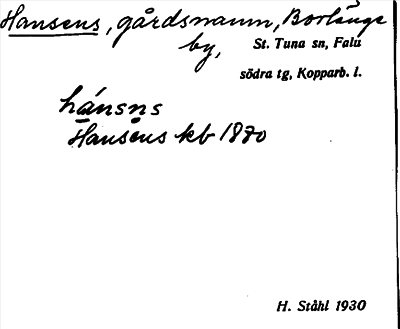 Hansens, gårdsnamn, Borlänge
by, St. Tuna sn, Falu
södra tg, Kopparb. l.
hánsns
Hansens kb 1880
H. Ståhl 1930